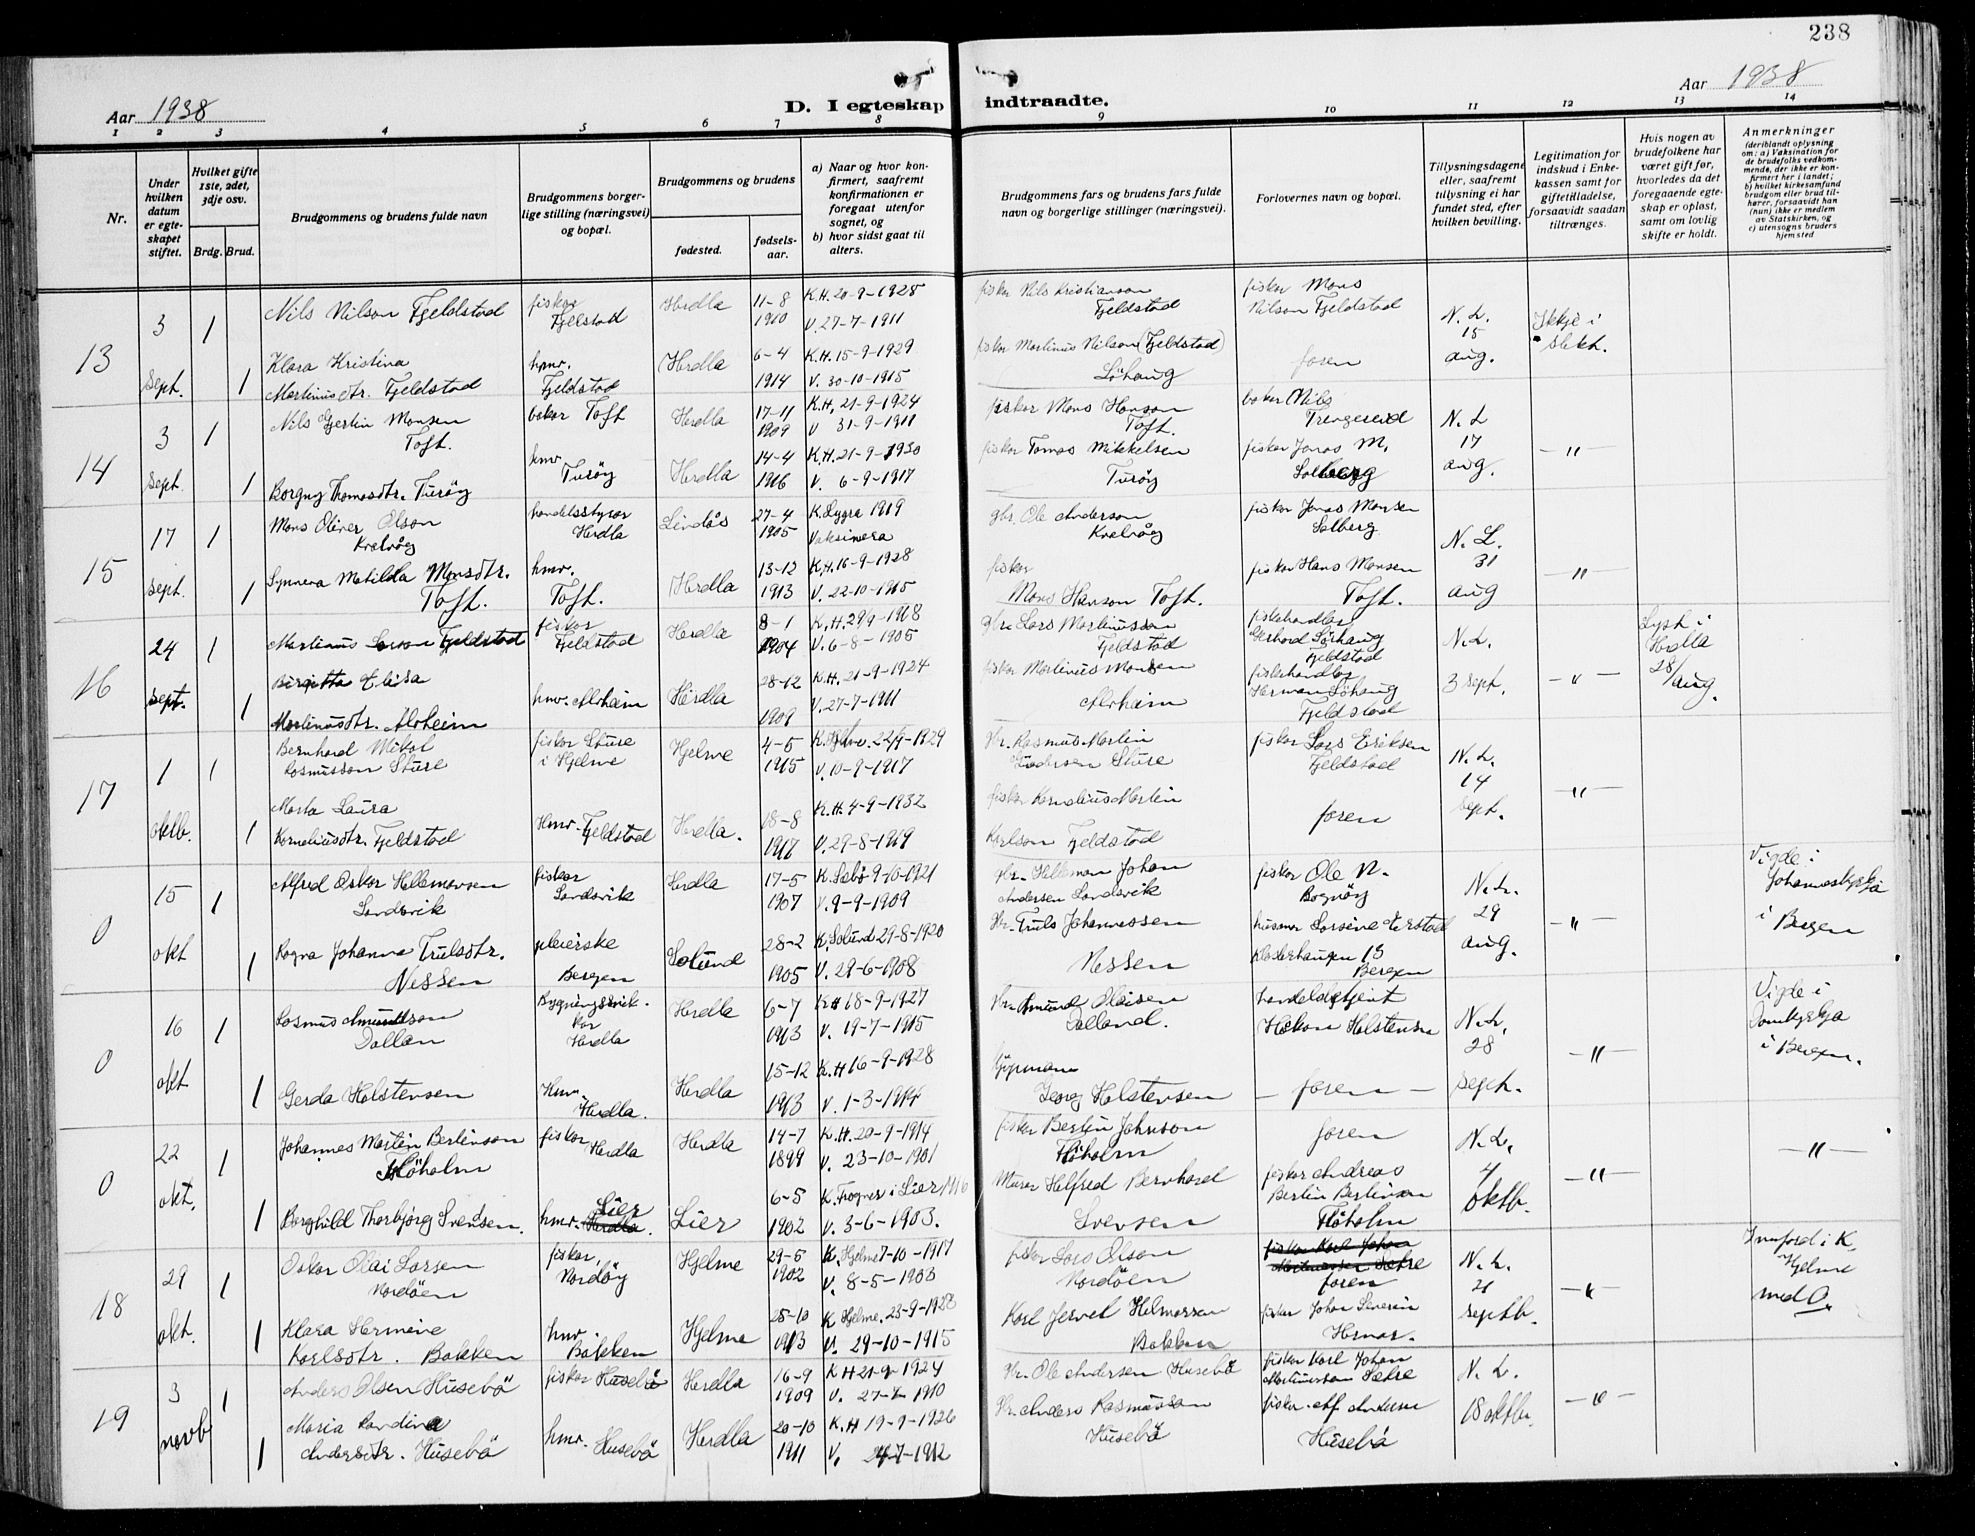 238
Aar 1938
D. I egteskap indtraadte.
Aar 1938
1 2 3 4 5 6 7 8 9 10 11 12 13 14
Nr.
Under hvilken datum er egteskapet stiftet.
Hvilket gifte 1ste, 2det, 3dje osv.
Brdg. Brud.
Brudgommens og brudens fulde navn
Brudgommens borgerlige stilling (næringsvei) og bopæl.
Brudgommens og brudens
fødested.
fødselsaar.
a) Naar og hvor konfirmert, saafremt konfirmationen er foregaat utenfor sognet, og
b) hvor sidst gaat til alters.
Brudgommens fars og brudens fars fulde navn og borgerlige stillinger (næringsvei).
Forlovernes navn og bopæl.
Tillysningsdagene eller, saafremt tillysning ei har fundet sted, efter hvilken bevilling.
Legitimation for indskud i Enkekassen samt for giftetilladelse, forsaavidt saadan tiltrænges.
Hvis nogen av brudefolkene har været gift før, hvorledes da det foregaaende egteskap er opløst, samt om lovlig skifte er holdt.
Anmerkninger (deriblandt oplysning om: a) Vaksination for de brudefolks vedkommende, der ikke er konfirmert her i landet; b) hvilket kirkesamfund brudgom eller brud tilhører, forsaavidt han (hun) ikke er medlem av Statskirken, og c) utensogns bruders hjemsted
13 3 sept. 1 Nils Nilson Fjeldstad fisker Fjelstad Herdla 11-8 1910 K.H. 20-9-1925 V. 27-7-1911 fisker Nils Kristianson Fjeldstad fisker Mons Nilson Fjeldstad N. L. 15 aug. Ikkje i slekt.
1 Klara Kristina Martinusdtr. Fjeldstad hmv. Fjeldstad Herdla 6-4 1914 K.H. 15-9-1929 V. 30-10-1915 fisker Martinus Nilson (Fjeldstad) Löhaug faren
14 3 sept. 1 Nils Gjertin Monsen Toft. baker Toft Herdla 17-11 1909 K.H. 21-9-1924 V 31-9-1911 fisker Mons Hanson Toft. baker Nils Trengereid N. L 17 aug. -"-
1 Borgny Thomasdtr. Turöy hmv Turöy Herdla 14-4 1916 K.H. 21-9-1930 V. 6-9-1917 fisker Tomas Mikkelsen Turöy fisker Jonas M. Solberg
15 17 sept. 1 Mons Oliver Olson handelsstyrer Herdla Lindås 27-4 1905 K. Lygra 1919 Vaksinera gbr. Ole Anderson fisker Jonas Monsen Solberg N. L. 31 aug -"-
1 Synneva Matilda Monsdtr. Toft. hmv. Toft. Herdla 13-12 1913 K.H. 16-9-1928 V. 22-10-1915 fisker Mons Hanson Toft. fisker Hans Monsen Toft.
16 24 sept. 1 Martinus Larson Fjeldstad fisker Fjeldstad Herdla 8-1 1904 K.H. 29/9-1918 V. 6-8-1905 gbr. Lars Martinusson Fjeldstad fiskehandler Gerhard Fjeldstad N. L. 3 sept. -"- Lyst i Herdla 28/aug.
1 Birgitta Elisa Martinusdtr. Alvheim hmv. Alvheim Herdla 28-12 1909 K.H. 21-9-1924 V. 27-7-1911 fisker Martinus Monsen Alvheim fiskehandler Herman Löhaug Fjeldstad
17 1 oktb. 1 Bernhard Mikal Rasmusson Sture fisker Sture i Hjelme Hjelme 4-5 1915 V. 10-9-1917 Gbr. Rasmus Martin Sture fisker Lars Eriksen Fjeldstad N. L. 14 sept. -"-
1 Marta Laura Korneliusdtr. Fjeldstad Hmv. Fjeldstad Herdla. 18-8 1917 K.H. 4-9-1932 V. 29-8-1919 fisker Kornelius Martin Karlson Fjeldstad faren
0 15 okt 1 Alfred Oskar Hellemansen Landsvik fisker Landsvik Herdla 17-5 1907 K. Sæbö 9-10-1921 V. 9-9-1909 Gbr. Helleman Johan Andersen Landsvik fisker Ole N. Bognöy N. L. 29 aug. -"- Vigde i Johanneskyrkja i Bergen
1 Ragna Johanna Trulsdtr. Nessen pleierske Bergen Solund 28-2 1905 K. Solund 29-8-1920 V. 29-6-1908 Gbr. Truls Johannessen Nessen husmor Klosterhaugen 15 Bergen
0 16 okt 1 Rasmus Amundson Dallan Herdla Herdla 6-7 1913 K.H 18-9-1927 V. 19-7-1915 Gbr. Amund Olaisen Dalland. handelsagent Håkon Holstensen N. L. 28 sept. -"- Vigde i Domkyrkja i Bergen.
1 Gerda Holstensen Hmv. Herdla. Herdla 15-12 1913 K.H 16-9-1928 Georg Holstensen - faren -
0 22 okt. 1 Johannes Martin Berlinson Flöholm fisker Herdla Herdla 14-7 1899 K.H. 20-9-1914 V. 23-10-1901 fisker Berlin Johnson Flöholm faren N. L. 4 oktb. -"- -"-
1 Borghild Thorbjörg Svensen. hmv. Lier Herdla Lier 6-5 1902 K. Frogner i Lier V. 3-6-1903. Murer Helfred Bernhard Svensen fisker Andreas Berlin Berlinson Flöholm
18 29 okt. 1 Oskar Olai Larsen Nordöen fisker, Nordöy Hjelme 29-5 1902 K. Hjelme 7-10-1917 V. 8-5-1903 fisker Lars Olson Nordöen fisker Karl Johan Martinussen Sætre faren N. L. 21 septb. -"- Innförd i K. Hjelme med 0.
1 Klara Hermine Karlsdtr. Bakken hmv. Bakken Hjelme 25-10 1913 K Hjelme. 23-9-1928 V. 29-10-1915 Karl Bakken fisker Johan Severin Hernar.
19 3 novb 1 Anders Olsen Husebö fisker Husebö Herdla 16-9 1909 K H 21-9-1924 Gbr. Ole Andersen Husebö fisker Karl Johan Martinussen Sætre N. L. 18 oktb. -"-
1 Maria Randina Andersdtr. Husebö hmv. Husebö Herdla 20-10 1911 K. H 19-9-1926 V. 1912 Gbr. Anders Rasmussen Husebö fisker Husebö